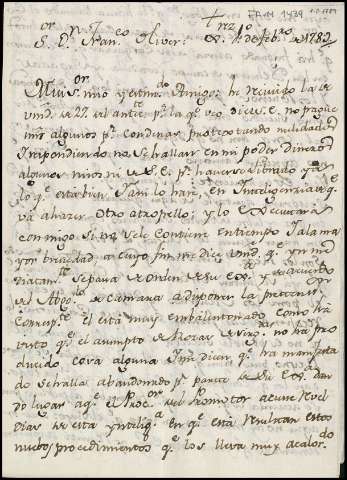 FA.M 1439
S.or D.n Fran.co Oliver:
de feb.ro de 1782
Muy S.or mio y estim.do Amigo: he recivido la de
vmd. de 27 del ante p.r la q.e veo dice S. E. no pague
mrs. algunos p.r condenar protextando nulidades
y respondiendo no se hallan en mi poder dinero
algunos mios ni de S. E. p.r haverse librado ya
lo q.e está bien, y asi lo hare, en inteligencia de q.e
va a hazer otro atropello; y lo executará
conmigo si no se le contiene en tiempo y a la ma
yor brevedad, a cuyo fin me dice Vmd. q.e ynme
diatam.te se pasa de orden de su Ex.a y de acuerdo
del Abog.do de camara a disponer la pretension
corresp.te el está muy embalentonado como ha
visto q.e el asumpto de no ha pro
ducido cosa alguna y me dicen q.e ha manifesta
do se halla abandonado p.r parte de Su Ex.a dan
do lugar a q.e el Proc.or del Promotor acuse revel
dias de esta yntelig.a en q.e está resultan estos
nuebos procedimientos q.e los lleva muy acalor.do